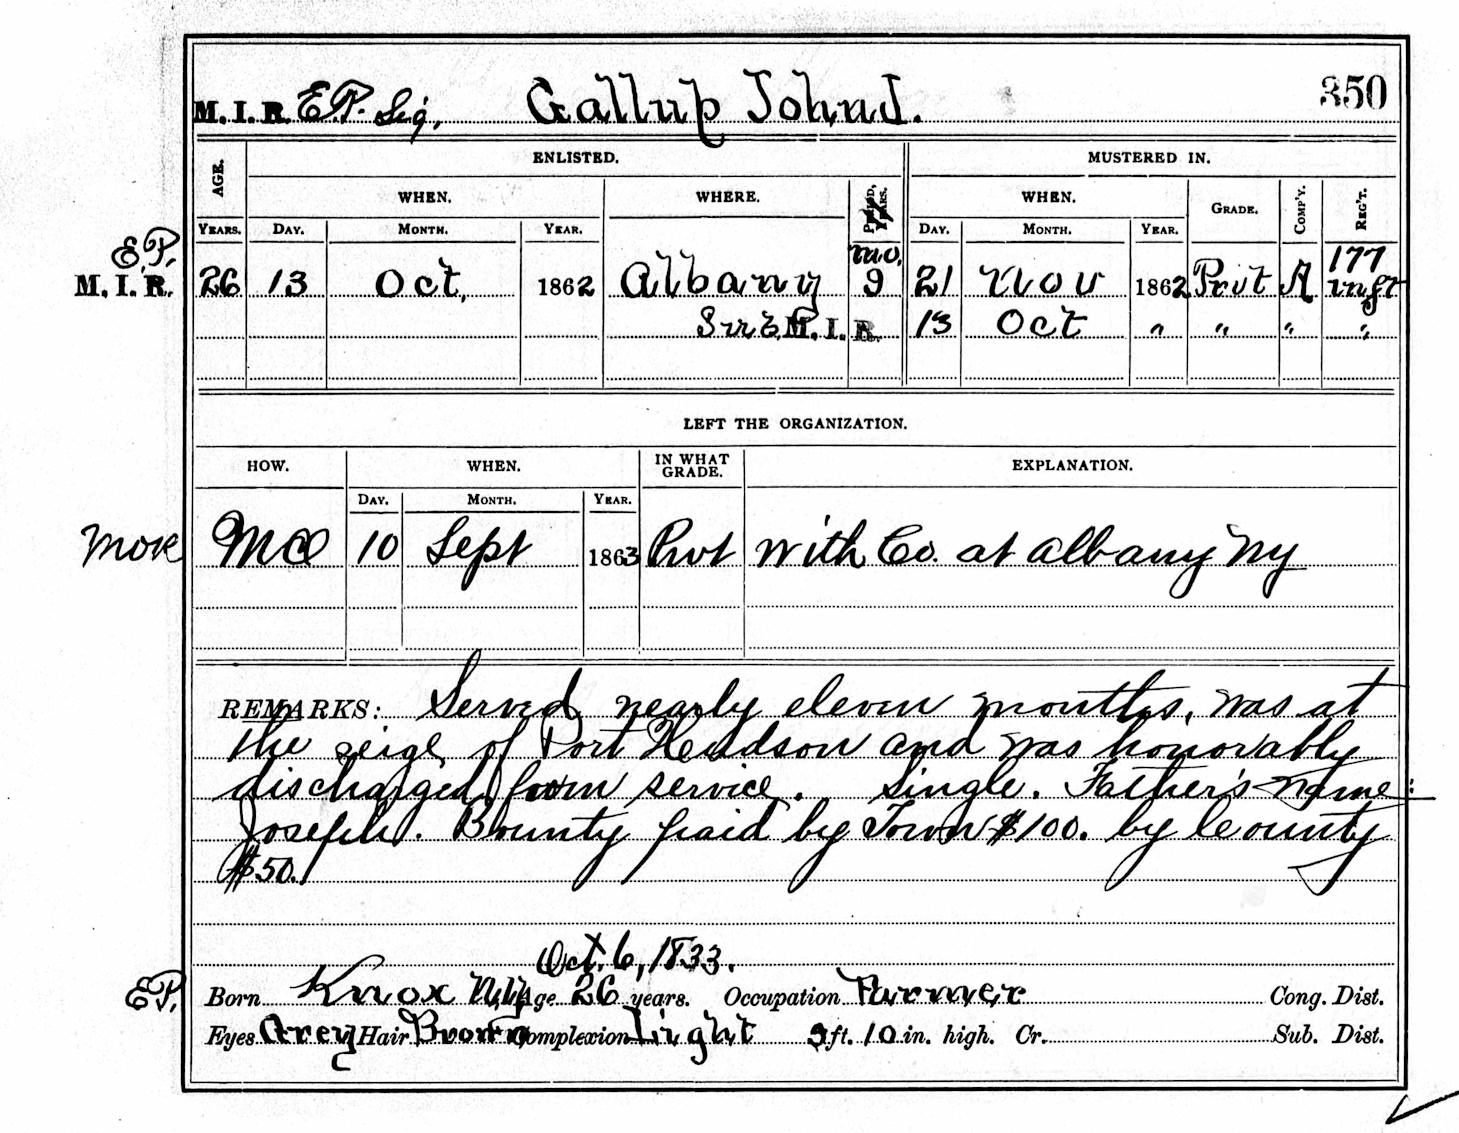 M. I. R. E.P. Sig. Gallup John J. 350
AGE. ENLISTED. MUSTERED IN.
WHEN. WHERE. PERIOD, YEARS. WHEN. GRADE. COMP'Y. REG'T.
YEARS. DAY. MONTH. YEAR. DAY. MONTH. YEAR.
E.P. mo. 177
M. I. R. 26 13 Oct. 1862 Albany 9 21 Nov 1862 Privt A inft
M. I. R. 13 Oct " " " "
LEFT THE ORGANIZATION.
HOW. WHEN. IN WHAT GRADE. EXPLANATION.
DAY. MONTH. YEAR.
MOR MO 10 Sept 1863 Privt with Co. at Albany NY
REMARKS: Served nearly eleven months, was at
the seige of Port Hudson and was honorably
discharged from service. Single. Father's name:
Joseph. Bounty paid by Town $100. by County
$50.
Oct. 6, 1833.
E.P. Born Knox N.Y. Age 26 years. Occupation Farmer Cong. Dist.
Eyes Grey Hair Brown Complexion Light ft. 10 in. high. Cr. Sub. Dist.